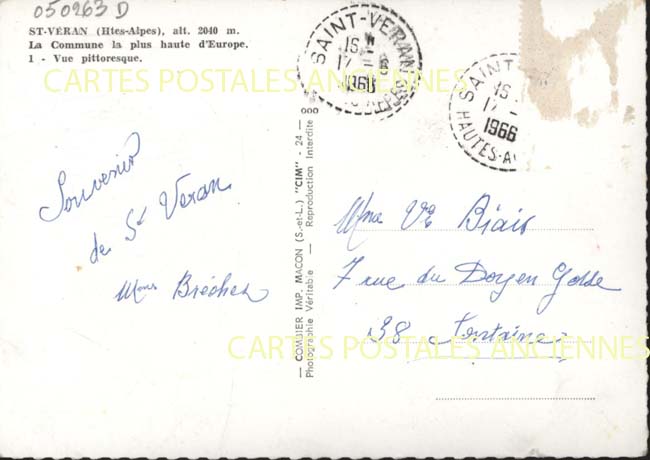 050263 D
ST-VÉRAN (Htes-Alpes), alt. 2040 m.
La Commune la plus haute d'Europe.
1 - Vue pittoresque.
CARTES POSTALES ANCIENNES
SAINT-VERAN
16
17
1966
SAINT-
16
17 -
1966
HAUTES-AL
Souvenir
de St Véran
Mme
— COMBIER IMP. MACON (S.-et-L.) "CIM" - 24 —
Photographie Véritable - Reproduction Interdite
Mme Vve Biais
7 rue du Doyen Gosse
38 Fontaine
CARTES POSTALES ANCIENNES